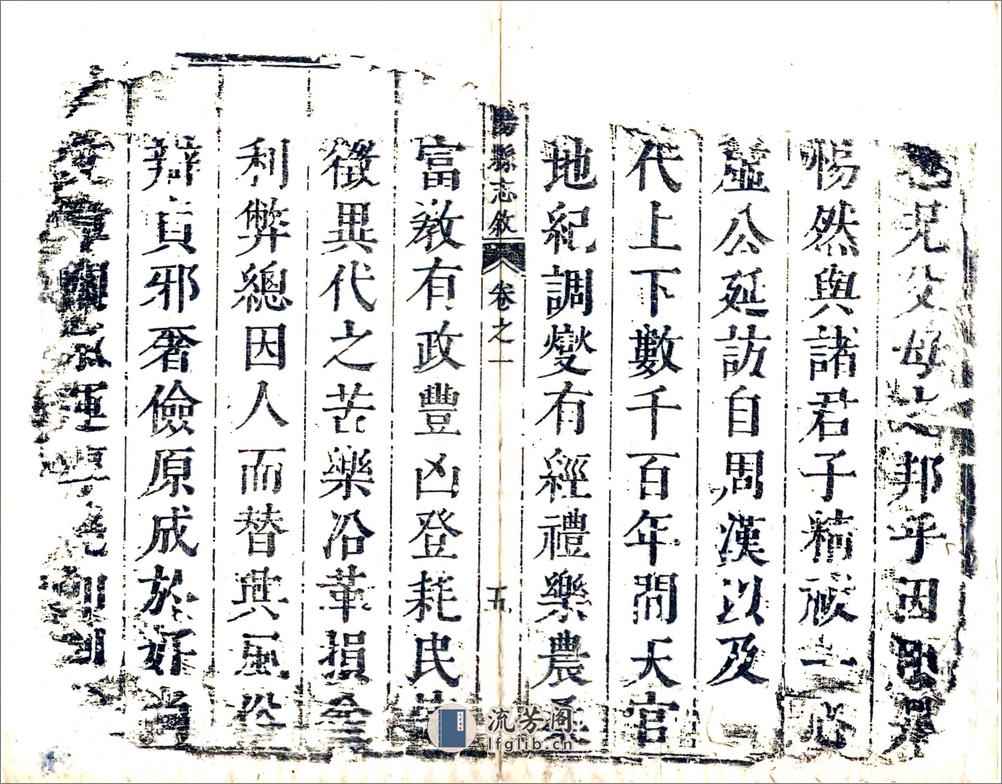 况父母之邦乎因
惕然與諸君子精祓一心
虛公延訪自周漢以及
代上下數千百年間天官
地紀調燮有經禮樂農桑
陽縣志敘 卷之一 五
富教有政豐凶登耗民生
徵異代之苦樂沿革損益
利弊總因人而替其風俗
辯貞邪奢儉原成於好尚
運
流芳阁
lfglib.cn